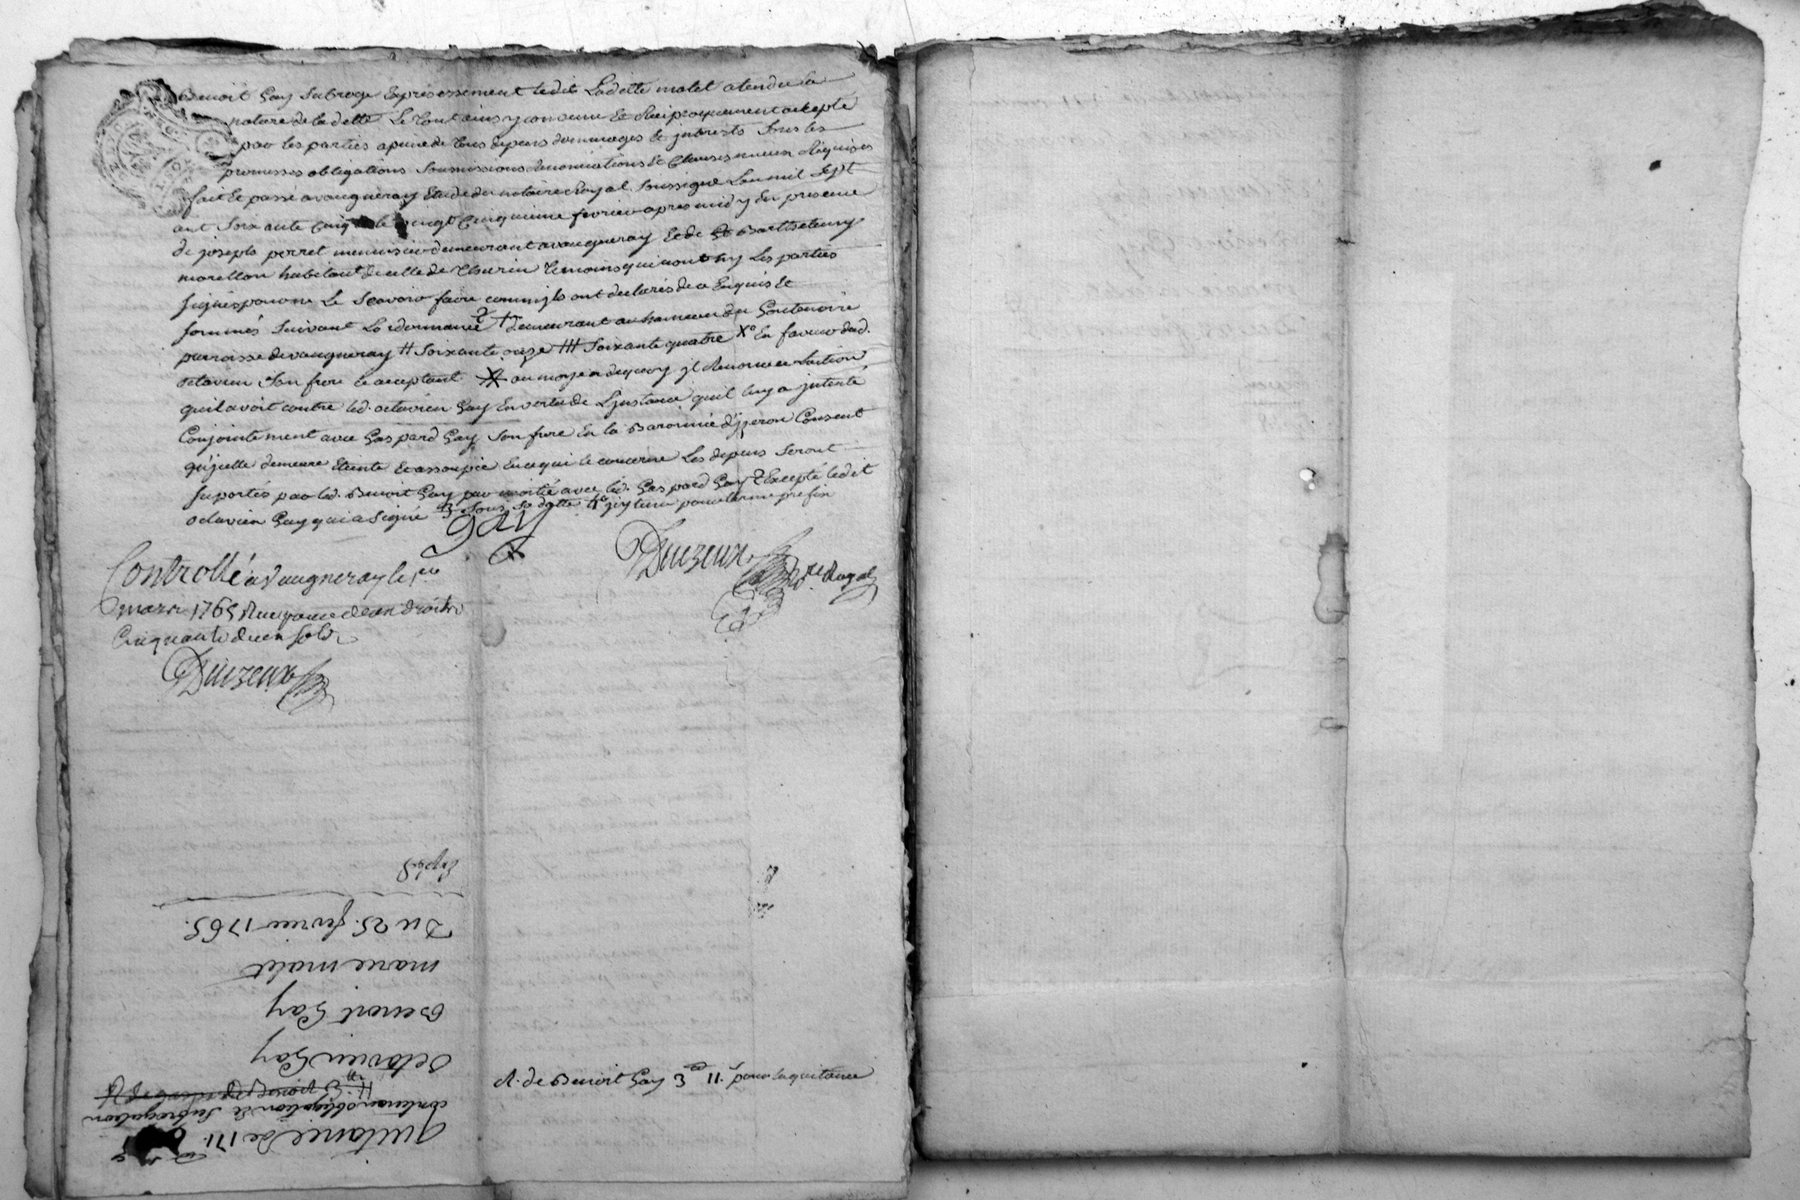 Benoit Gay Subroge Expressement ledit Ladette malet atendu la
nature de la dette Le tout ainsy convenu & Reciproquement accepté
par les parties apeine de tous depens dommages & jnterets Sous les
promesses obligations Soumissions Renonciations & Clauses Requises
fait & passé a vaugneray Etude du notaire Royal Soussigné Lan mil Sept
cent Soixante Cinq le vingt Cinquieme fevrier apres midy En presence
de joseph perret menuisier demeurant a vaugneray & de Barthelemy
morellon habitant de celle de Thurin temoins qui nont ny Les parties
Signés pour ne Le Scavoir faire comm'jls ont declarés de ce Enquis &
Sommés Suivant Lordonnance + demeurant au hameau du
parroisse de vaugneray # Soixante onze ## Soixante quatre Xº En faveur dud.
octavien Son frere & acceptant au moyen dequoy jl Renonce a Laction
quil avoit contre led. octavien Gay En vertu de Ljnstance quil luy a jntenté
Conjointement avec Gaspard Gay Son frere En la Baronnie d'jzeron Consent
qu'jcelle demeure Eteinte & assoupie En ce qui le concerne Les depens Seront
Suportés par led. Benoit Gay par moitié avec led. Gaspard Gay Excepté ledit
octavien Gay qui a Signé Sous Sa dette pour terme prefix
Gay
Duizeux
Nre Royal
Controllé a Vaugneray le 1er
mars 1765 Reçu pour deux droits
Cinquante deux Sols
Duizeux
Expd
Du 25. fevrier 1765.
marie malet
Benoit Gay
octavien Gay
contenant obligation & Subrogation
quitance de 171.
R. de Benoit Gay 3 11 pour la quitance